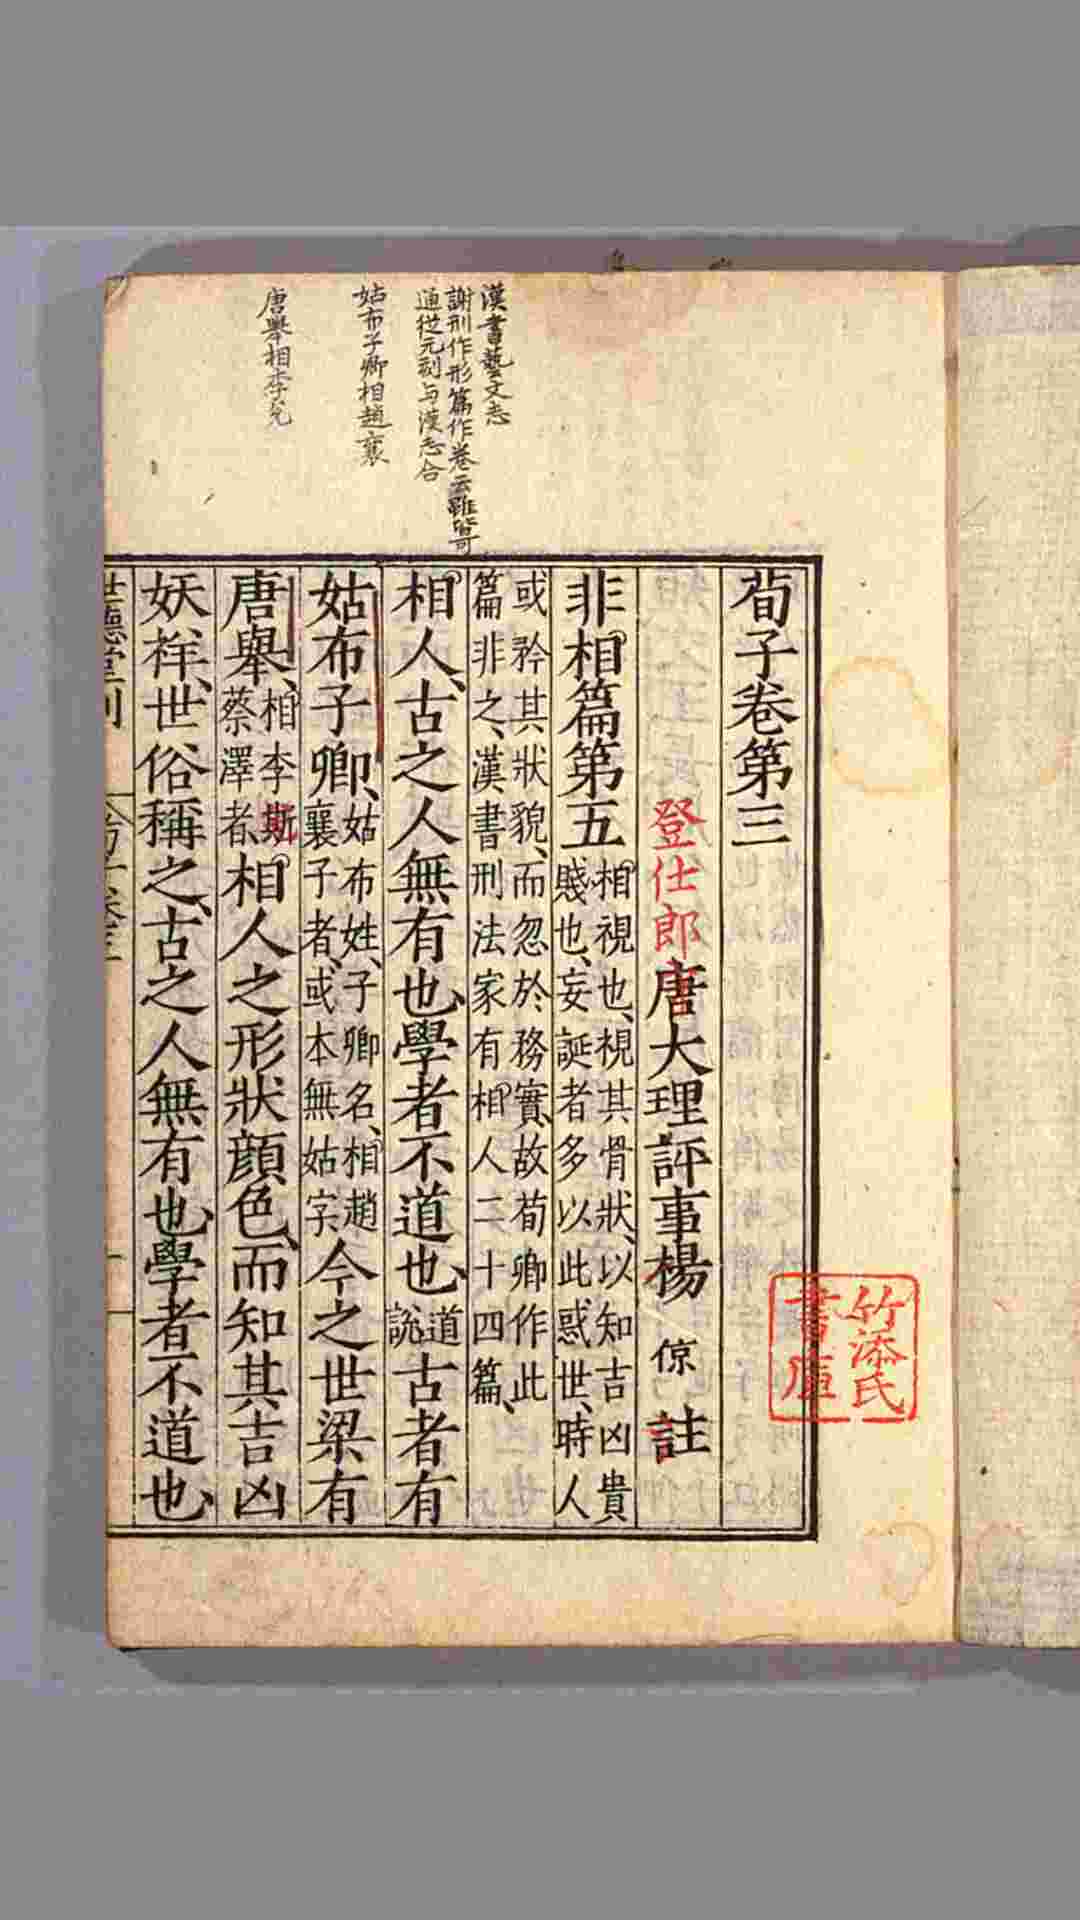 漢書藝文志
謝刑作形篇作卷云
通從元刻与漢志合
姑布子卿相趙襄
唐舉相李兌
荀子卷第三
登仕郎唐大理評事楊 倞 註
非相篇第五
相視也、視其骨狀、以知吉凶貴
賤也、妄誕者多以此惑世、時人
或矜其狀貌、而忽於務實、故荀卿作此
篇非之、漢書刑法家有相人二十四篇、
相人、古之人無有也、學者不道也、道說古者有
姑布子卿、
姑布姓、子卿名、相趙
襄子者、或本無姑字、
今之世梁有
唐舉、
相李斯
蔡澤者、
相人之形狀顏色、而知其吉凶
妖祥、世俗稱之、古之人無有也、學者不道也、
世德堂刊
竹添氏
書庫